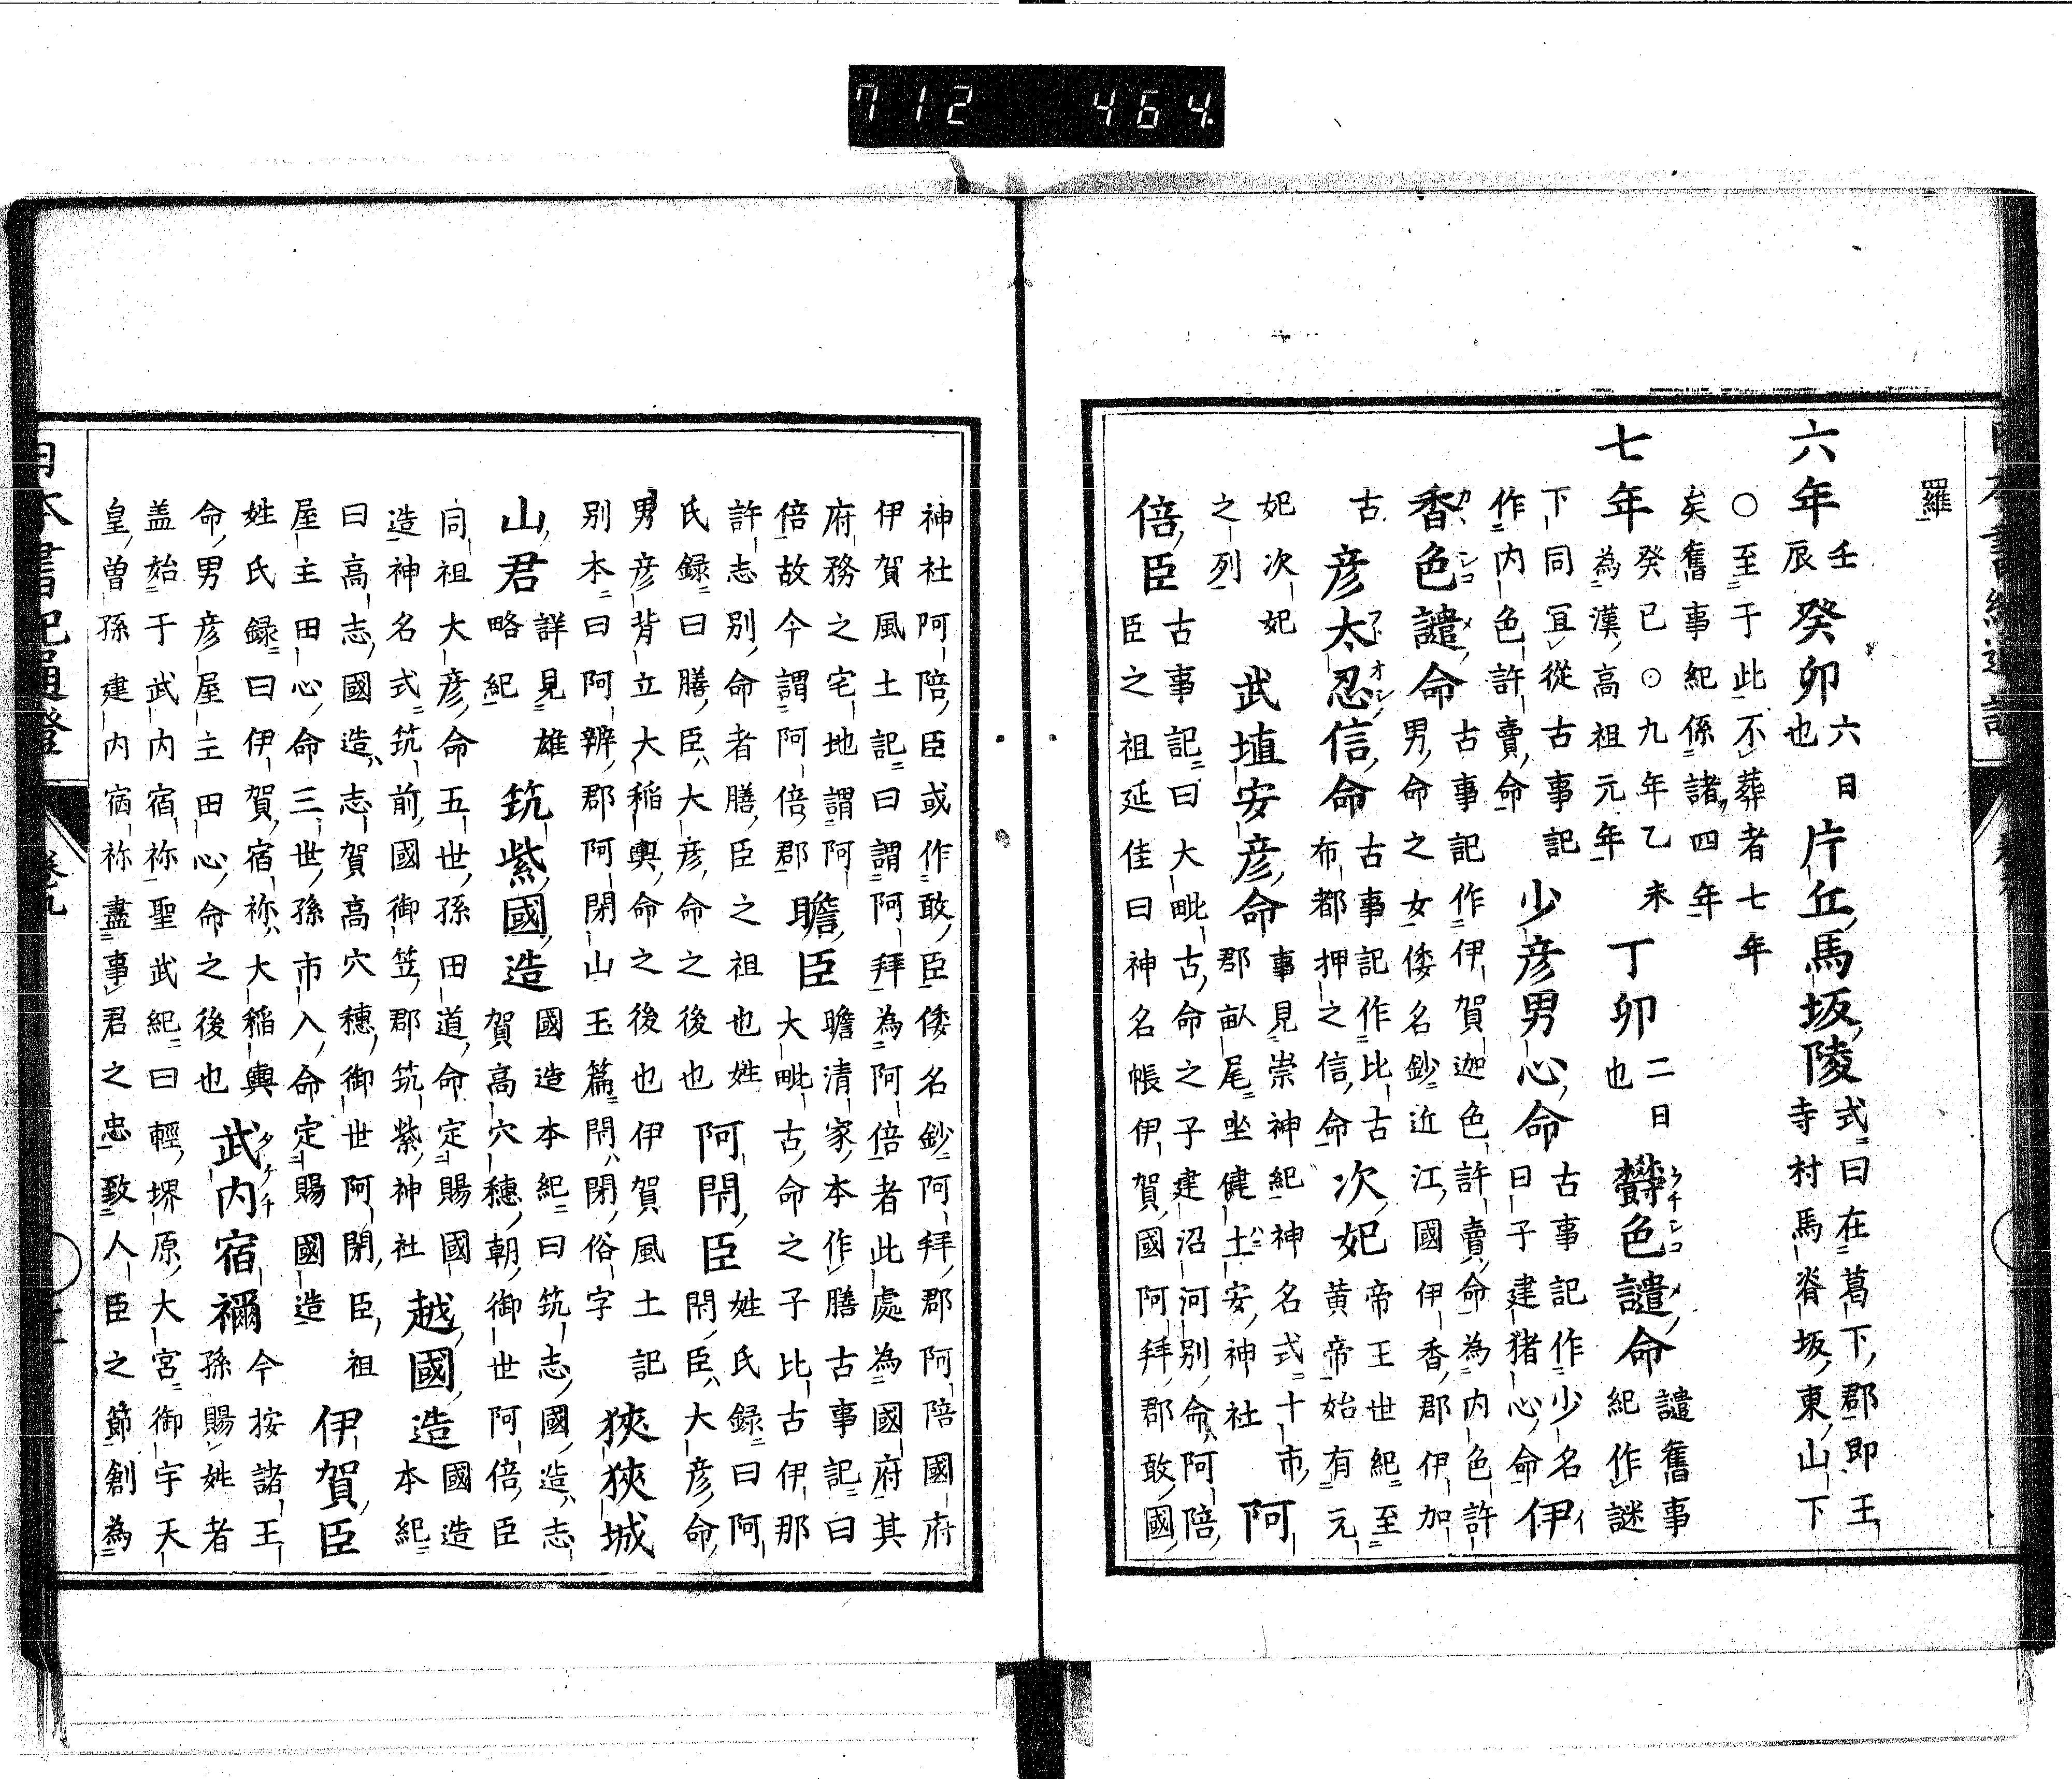 712 464
羅
六年壬辰癸卯六日也片丘馬坂陵式曰在葛下郡即王
寺村馬脊坂東山下
○至于此不葬者七年
矣舊事紀係諸四年
七年癸巳○九年乙未
為漢高祖元年丁卯二日也欝色謎命謎舊事
紀作謎
下同宜從古事記
作內色許賣命少彦男心命古事記作少名
曰子建猪心命伊
香色謎命古事記作伊賀迦色許賣命為内色許
男命之女倭名鈔近江國伊香郡伊加
古彦太忍信命古事記作比古
布都押之信命次妃帝王世紀至
黄帝始有元
妃次妃
之列武埴安彦命事見崇神紀神名式十市
郡畝尾坐健土安神社阿
倍臣古事記曰大毗古命之子建沼河別命阿陪
臣之祖延佳曰神名帳伊賀國阿拜郡敢國
神社阿陪臣或作敢臣倭名鈔阿拜郡阿陪國府
伊賀風土記曰謂阿拜為阿倍者此處為國府其
府務之宅地謂阿
倍故今謂阿倍郡膽臣膽清家本作膳古事記曰
大毗古命之子比古伊那
許志別命者膳臣之祖也姓
氏録曰膳臣大彦命之後也阿閇臣姓氏録曰阿
閇臣大彦命
男彦背立大稲輿命之後也伊賀風土記
別本曰阿辨郡阿閉山玉篇閇閉俗字狹狹城
山君詳見雄
略紀筑紫國造國造本紀曰筑志國造志
賀高穴穗朝御世阿倍臣
同祖大彦命五世孫田道命定賜國
造神名式筑前國御笠郡筑紫神社越國造國造
本紀
曰高志國造志賀高穴穗御世阿閉臣祖
屋主田心命三世孫市入命定賜國造伊賀臣
姓氏録曰伊賀宿祢大稲輿
命男彦屋主田心命之後也武内宿禰今按諸王
孫賜姓者
盖始于武内宿祢聖武紀曰輕堺原大宮御宇天
皇曽孫建内宿祢盡事君之忠致人臣之節創為
日本書紀通證